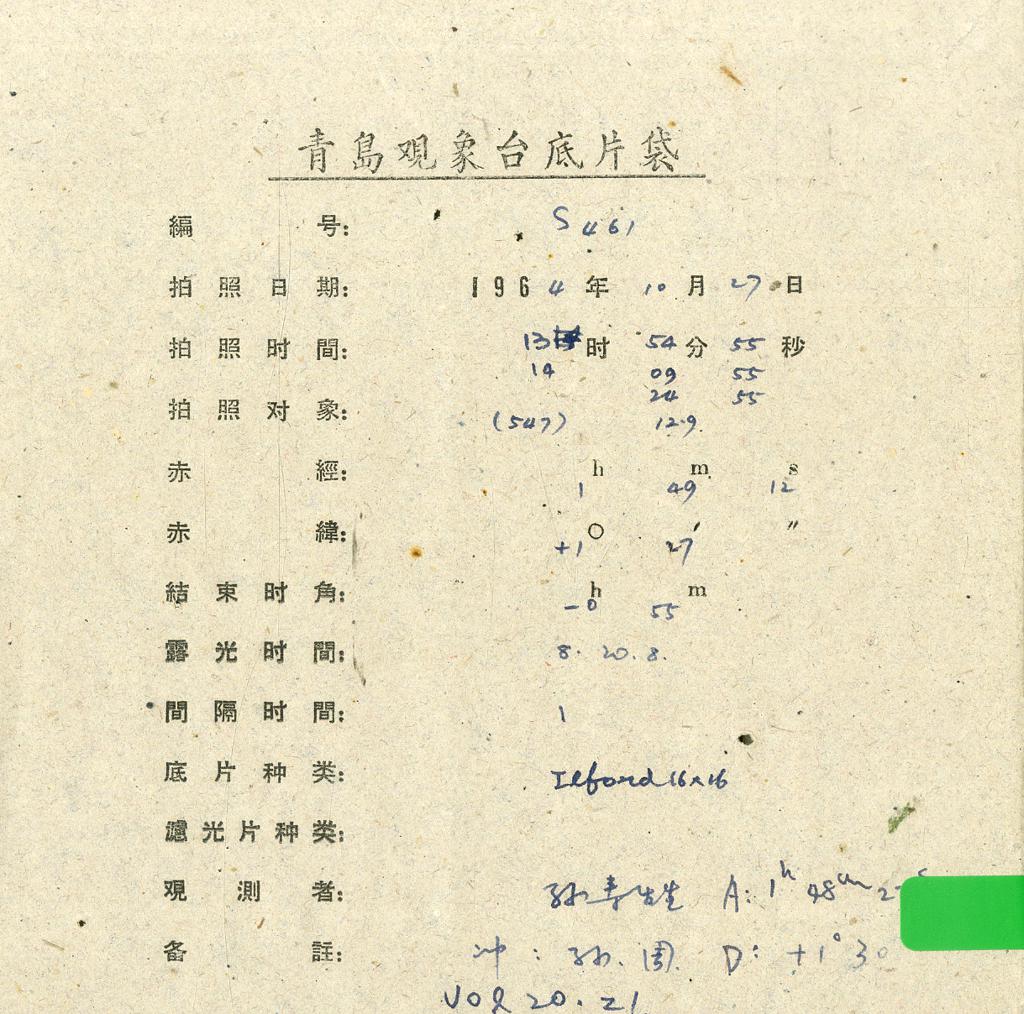 青島观象台底片袋
編号: S 461
拍照日期: 1964年10月27日
拍照时間: 13时54分55秒
14 09 55
24 55
拍照对象: (547) 12.9.
赤經: 1h 49m 12s
赤緯: +1° 27′ ″
結束时角: -0h 55m
露光时間: 8. 20. 8.
間隔时間: 1
底片种类: Ilford 16×16
濾光片种类:
观測者: A: 1h 48m
备註: 冲: 孙. 周. D: +1° 30
VOL 20. 21